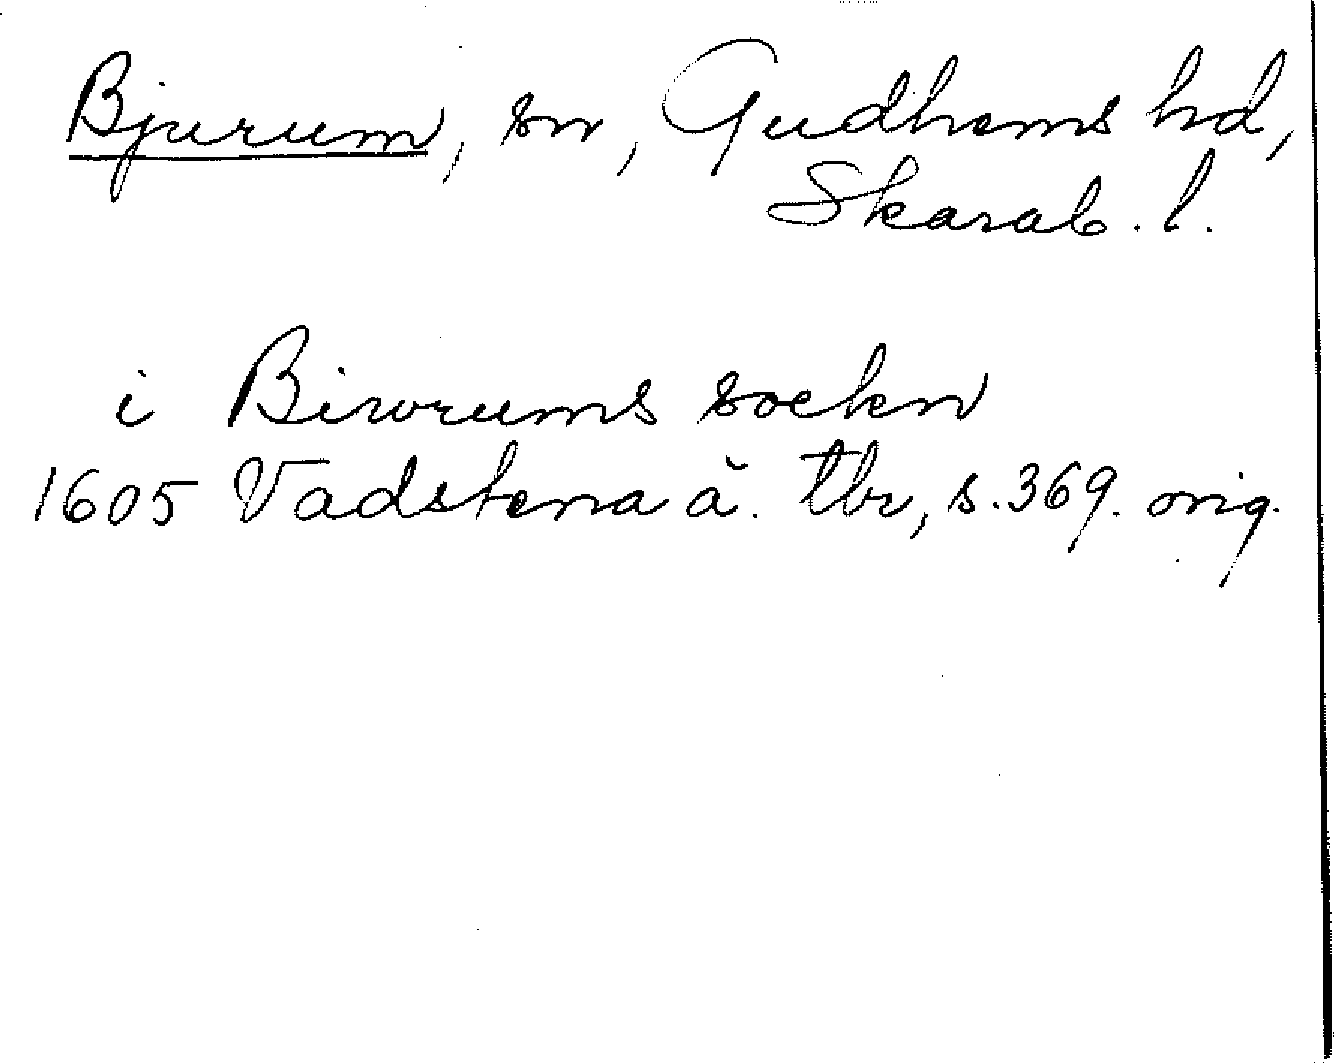 Bjurum, sn, Gudhems hd,
Skarab. l.
i Birvrums sockn
1605 Vadstena ä. tbr, s. 369. orig.